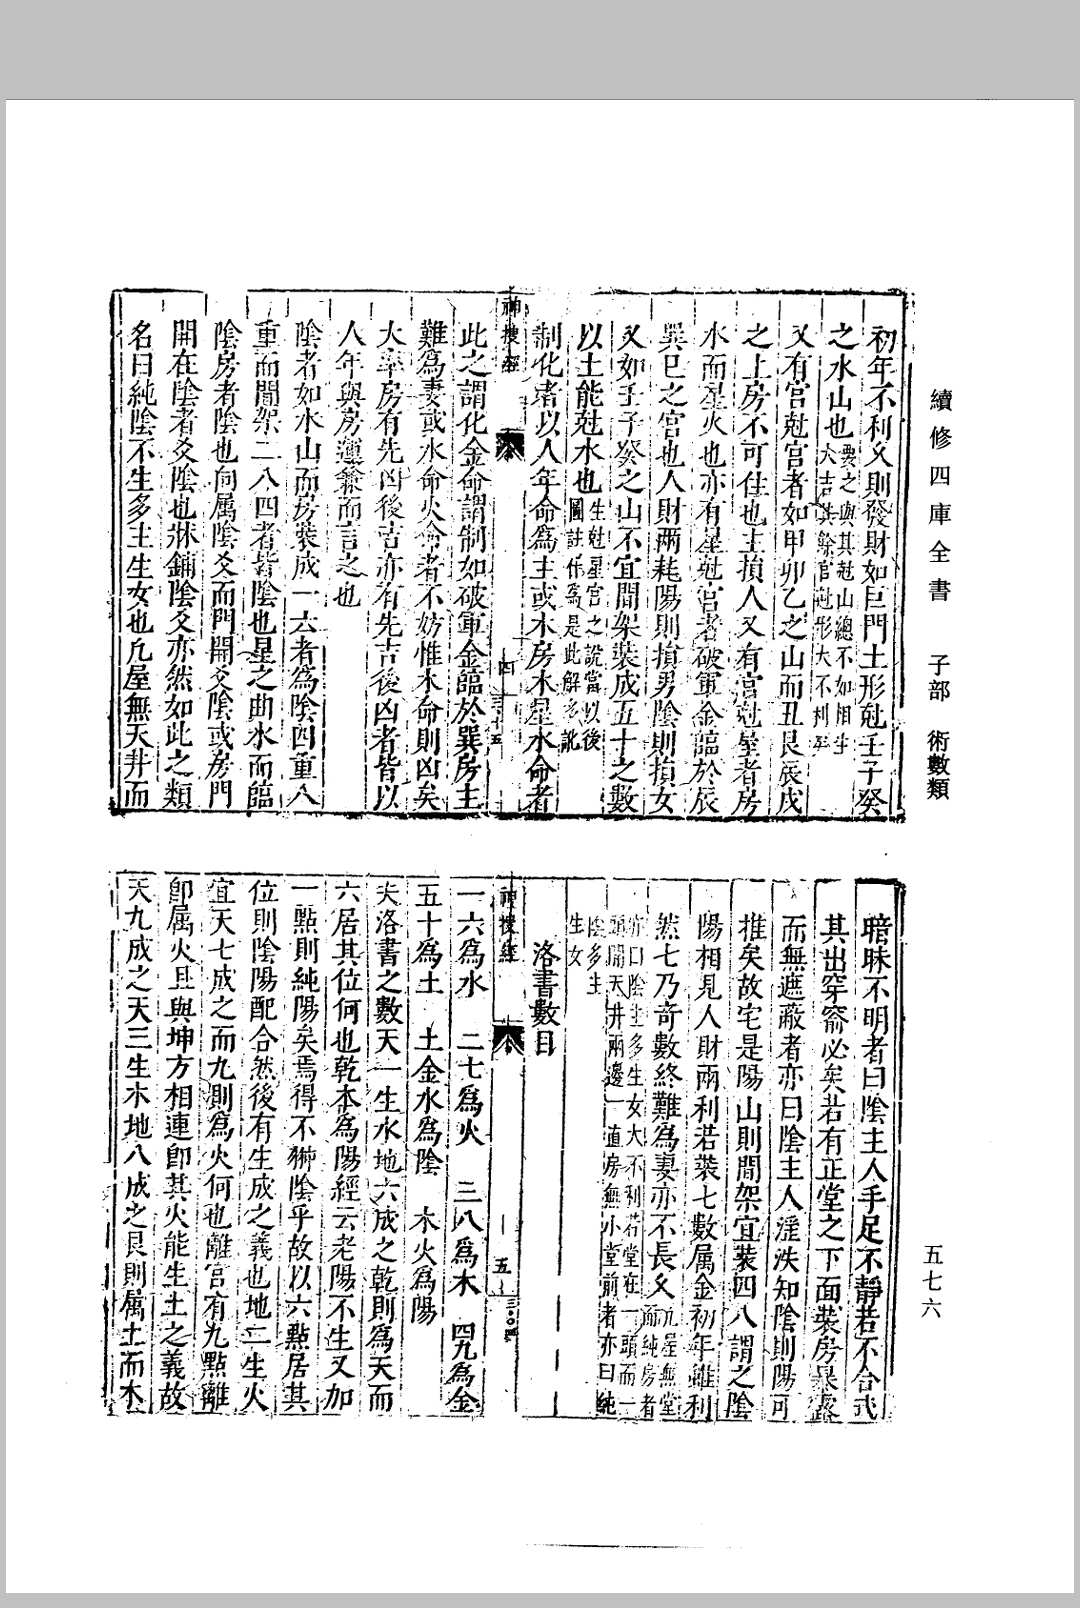 續修四庫全書 子部 術數類
初年不利久則發財如巨門土形尅壬子癸
之水山也要之與其尅山總不如相生
大吉其餘官尅形大不利耳
又有宮尅宮者如甲卯乙之山而丑艮辰戌
之上房不可住也主損人又有宮尅星者房
水而星火也亦有星尅宮者破軍金臨於辰
巽巳之宮也人財兩耗陽則損男陰則損女
又如壬子癸之山不宜間架裝成五十之數
以土能尅水也生尅星宮之説當以後
圖註作爲是此解多訛
制化者以人年命爲主或木房水星水命者
神搜經
四
此之謂化金命謂制如破軍金臨於巽房主
難爲妻或水命火命者不妨惟木命則凶矣
大率房有先凶後吉亦有先吉後凶者皆以
人年與房運兼而言之也
陰者如水山而房裝成一六者爲陰四重八
重而間架二八四者皆陰也星之曲水而臨
陰房者陰也向属陰爻而門開爻陰或房門
開在陰者爻陰也牀鋪陰爻亦然如此之類
名曰純陰不生多主生女也凡屋無天井而
五七六
暗昧不明者曰陰主人手足不靜若不合式
其出穿窬必矣若有正堂之下面裝房暴露
而無遮蔽者亦曰陰主人淫泆知陰則陽可
推矣故宅是陽山則間架宜裝四八謂之陰
陽相見人財兩利若裝七數属金初年雖利
然七乃奇數終難爲妻亦不長久凡屋無堂
而純房者
亦曰陰主多生女大不利若堂在一頭而一
頭開天井兩邊一直房無小堂前者亦曰純
陰多生
生女
洛書數目
神搜經
五
一六爲水 二七爲火 三八爲木 四九爲金
五十爲土 土金水爲陰 木火爲陽
夫洛書之數天一生水地六成之乾則爲天而
六居其位何也乾本爲陽經云老陽不生又加
一點則純陽矣焉得不獅陰乎故以六點居其
位則陰陽配合然後有生成之義也地二生火
宜天七成之而九則爲火何也離宮有九點離
卽属火且與坤方相連卽其火能生土之義故
天九成之天三生木地八成之艮則属土而木